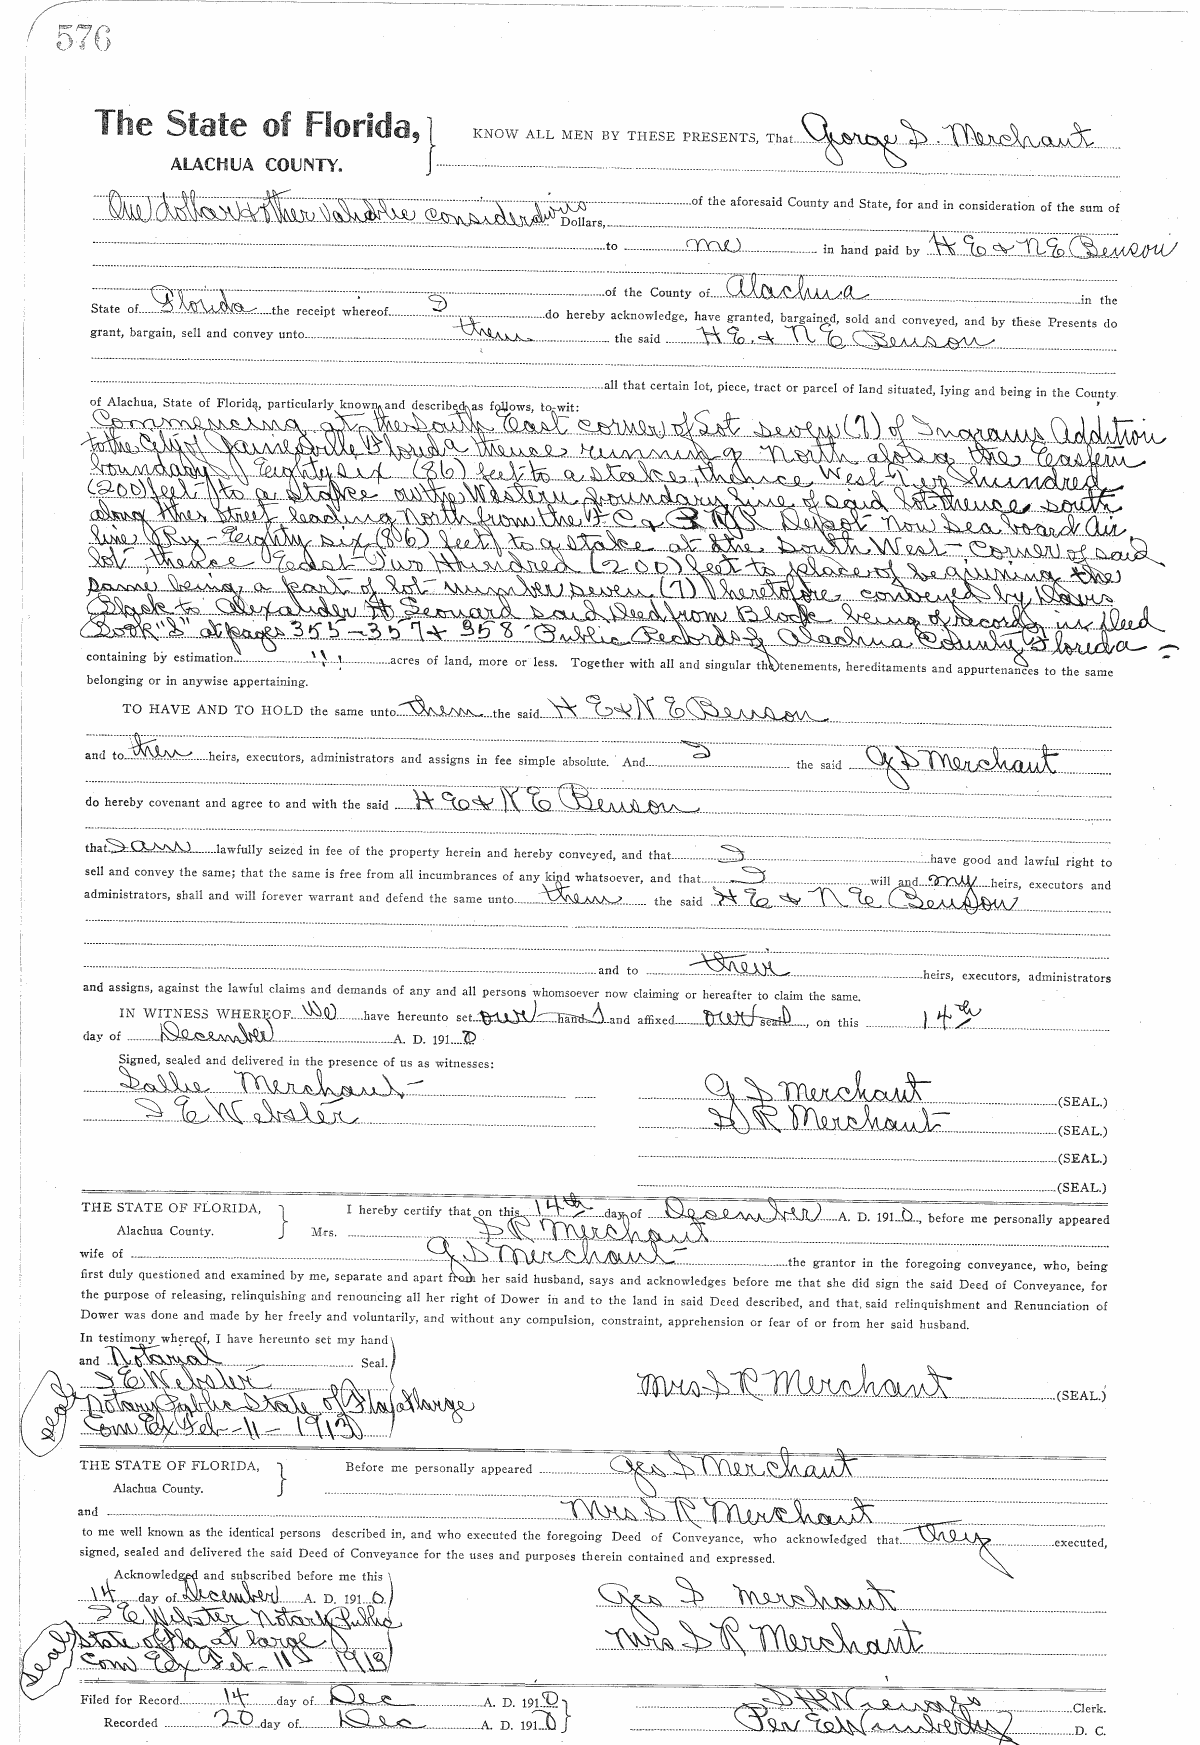 576
The State of Florida,
ALACHUA COUNTY.
KNOW ALL MEN BY THESE PRESENTS, That George S. Merchant
of the aforesaid County and State, for and in consideration of the sum of
One dollar & other valuable considerations Dollars,
to me in hand paid by H E & N E Benson
of the County of Alachua in the
State of Florida the receipt whereof I do hereby acknowledge, have granted, bargained, sold and conveyed, and by these Presents do
grant, bargain, sell and convey unto them the said H E. & N E Benson
all that certain lot, piece, tract or parcel of land situated, lying and being in the County
of Alachua, State of Florida, particularly known and described as follows, to-wit:
Commencing at the South East corner of Lot seven (7) of Ingrams Addition
to the City of Gainesville Florida thence running North along the Eastern
boundary Eighty six (86) feet to a stake, thence West Two hundred
(200) feet to a stake on the Western boundary line of said lot thence south
along the Street leading North from the F C & P R R Depot now Sea board Air
line Ry - Eighty six (86) feet to a stake at the South West - Corner of said
lot, thence East Two Hundred (200) feet to place of beginning the
same being a part of lot number seven (7) heretofore conveyed by
Block to Alexander H Leonard said Deed from Block being of record in Deed
Book "S" at pages 355 - 357 & 358 Public Records of Alachua County Florida -
containing by estimation " " acres of land, more or less. Together with all and singular the tenements, hereditaments and appurtenances to the same
belonging or in anywise appertaining.
TO HAVE AND TO HOLD the same unto them the said H E & N E Benson
and to their heirs, executors, administrators and assigns in fee simple absolute. And I the said G S Merchant
do hereby covenant and agree to and with the said H E & N E Benson
that I am lawfully seized in fee of the property herein and hereby conveyed, and that I have good and lawful right to
sell and convey the same; that the same is free from all incumbrances of any kind whatsoever, and that I will and my heirs, executors and
administrators, shall and will forever warrant and defend the same unto them the said H E & N E Benson
and to their heirs, executors, administrators
and assigns, against the lawful claims and demands of any and all persons whomsoever now claiming or hereafter to claim the same.
IN WITNESS WHEREOF We have hereunto set our hand s and affixed our seal, on this 14th
day of December A. D. 1910
Signed, sealed and delivered in the presence of us as witnesses:
Sallie Merchant
I E Webster
G S Merchant (SEAL.)
S R Merchant (SEAL.)
(SEAL.)
(SEAL.)
THE STATE OF FLORIDA,
Alachua County.
I hereby certify that on this 14th day of December A. D. 1910, before me personally appeared
Mrs. S R Merchant
wife of G S Merchant the grantor in the foregoing conveyance, who, being
first duly questioned and examined by me, separate and apart from her said husband, says and acknowledges before me that she did sign the said Deed of Conveyance, for
the purpose of releasing, relinquishing and renouncing all her right of Dower in and to the land in said Deed described, and that said relinquishment and Renunciation of
Dower was done and made by her freely and voluntarily, and without any compulsion, constraint, apprehension or fear of or from her said husband.
In testimony whereof, I have hereunto set my hand
and Notarial Seal.
I E Webster
Notary Public State of Fla at large
Com Ex Feb - 11 - 1913
Seal
Mrs S R Merchant (SEAL.)
THE STATE OF FLORIDA,
Alachua County.
Before me personally appeared Geo S Merchant
and Mrs S R Merchant
to me well known as the identical persons described in, and who executed the foregoing Deed of Conveyance, who acknowledged that they executed,
signed, sealed and delivered the said Deed of Conveyance for the uses and purposes therein contained and expressed.
Acknowledged and subscribed before me this
14 day of December A. D. 1910
I E Webster Notary Public
State of Fla at large
Com Ex Feb - 11 1913
Seal
Geo S Merchant
Mrs S R Merchant
Filed for Record 14 day of Dec A. D. 1910
Recorded 20 day of Dec A. D. 1910
S H Wienges Clerk.
Per E Wimberly D. C.